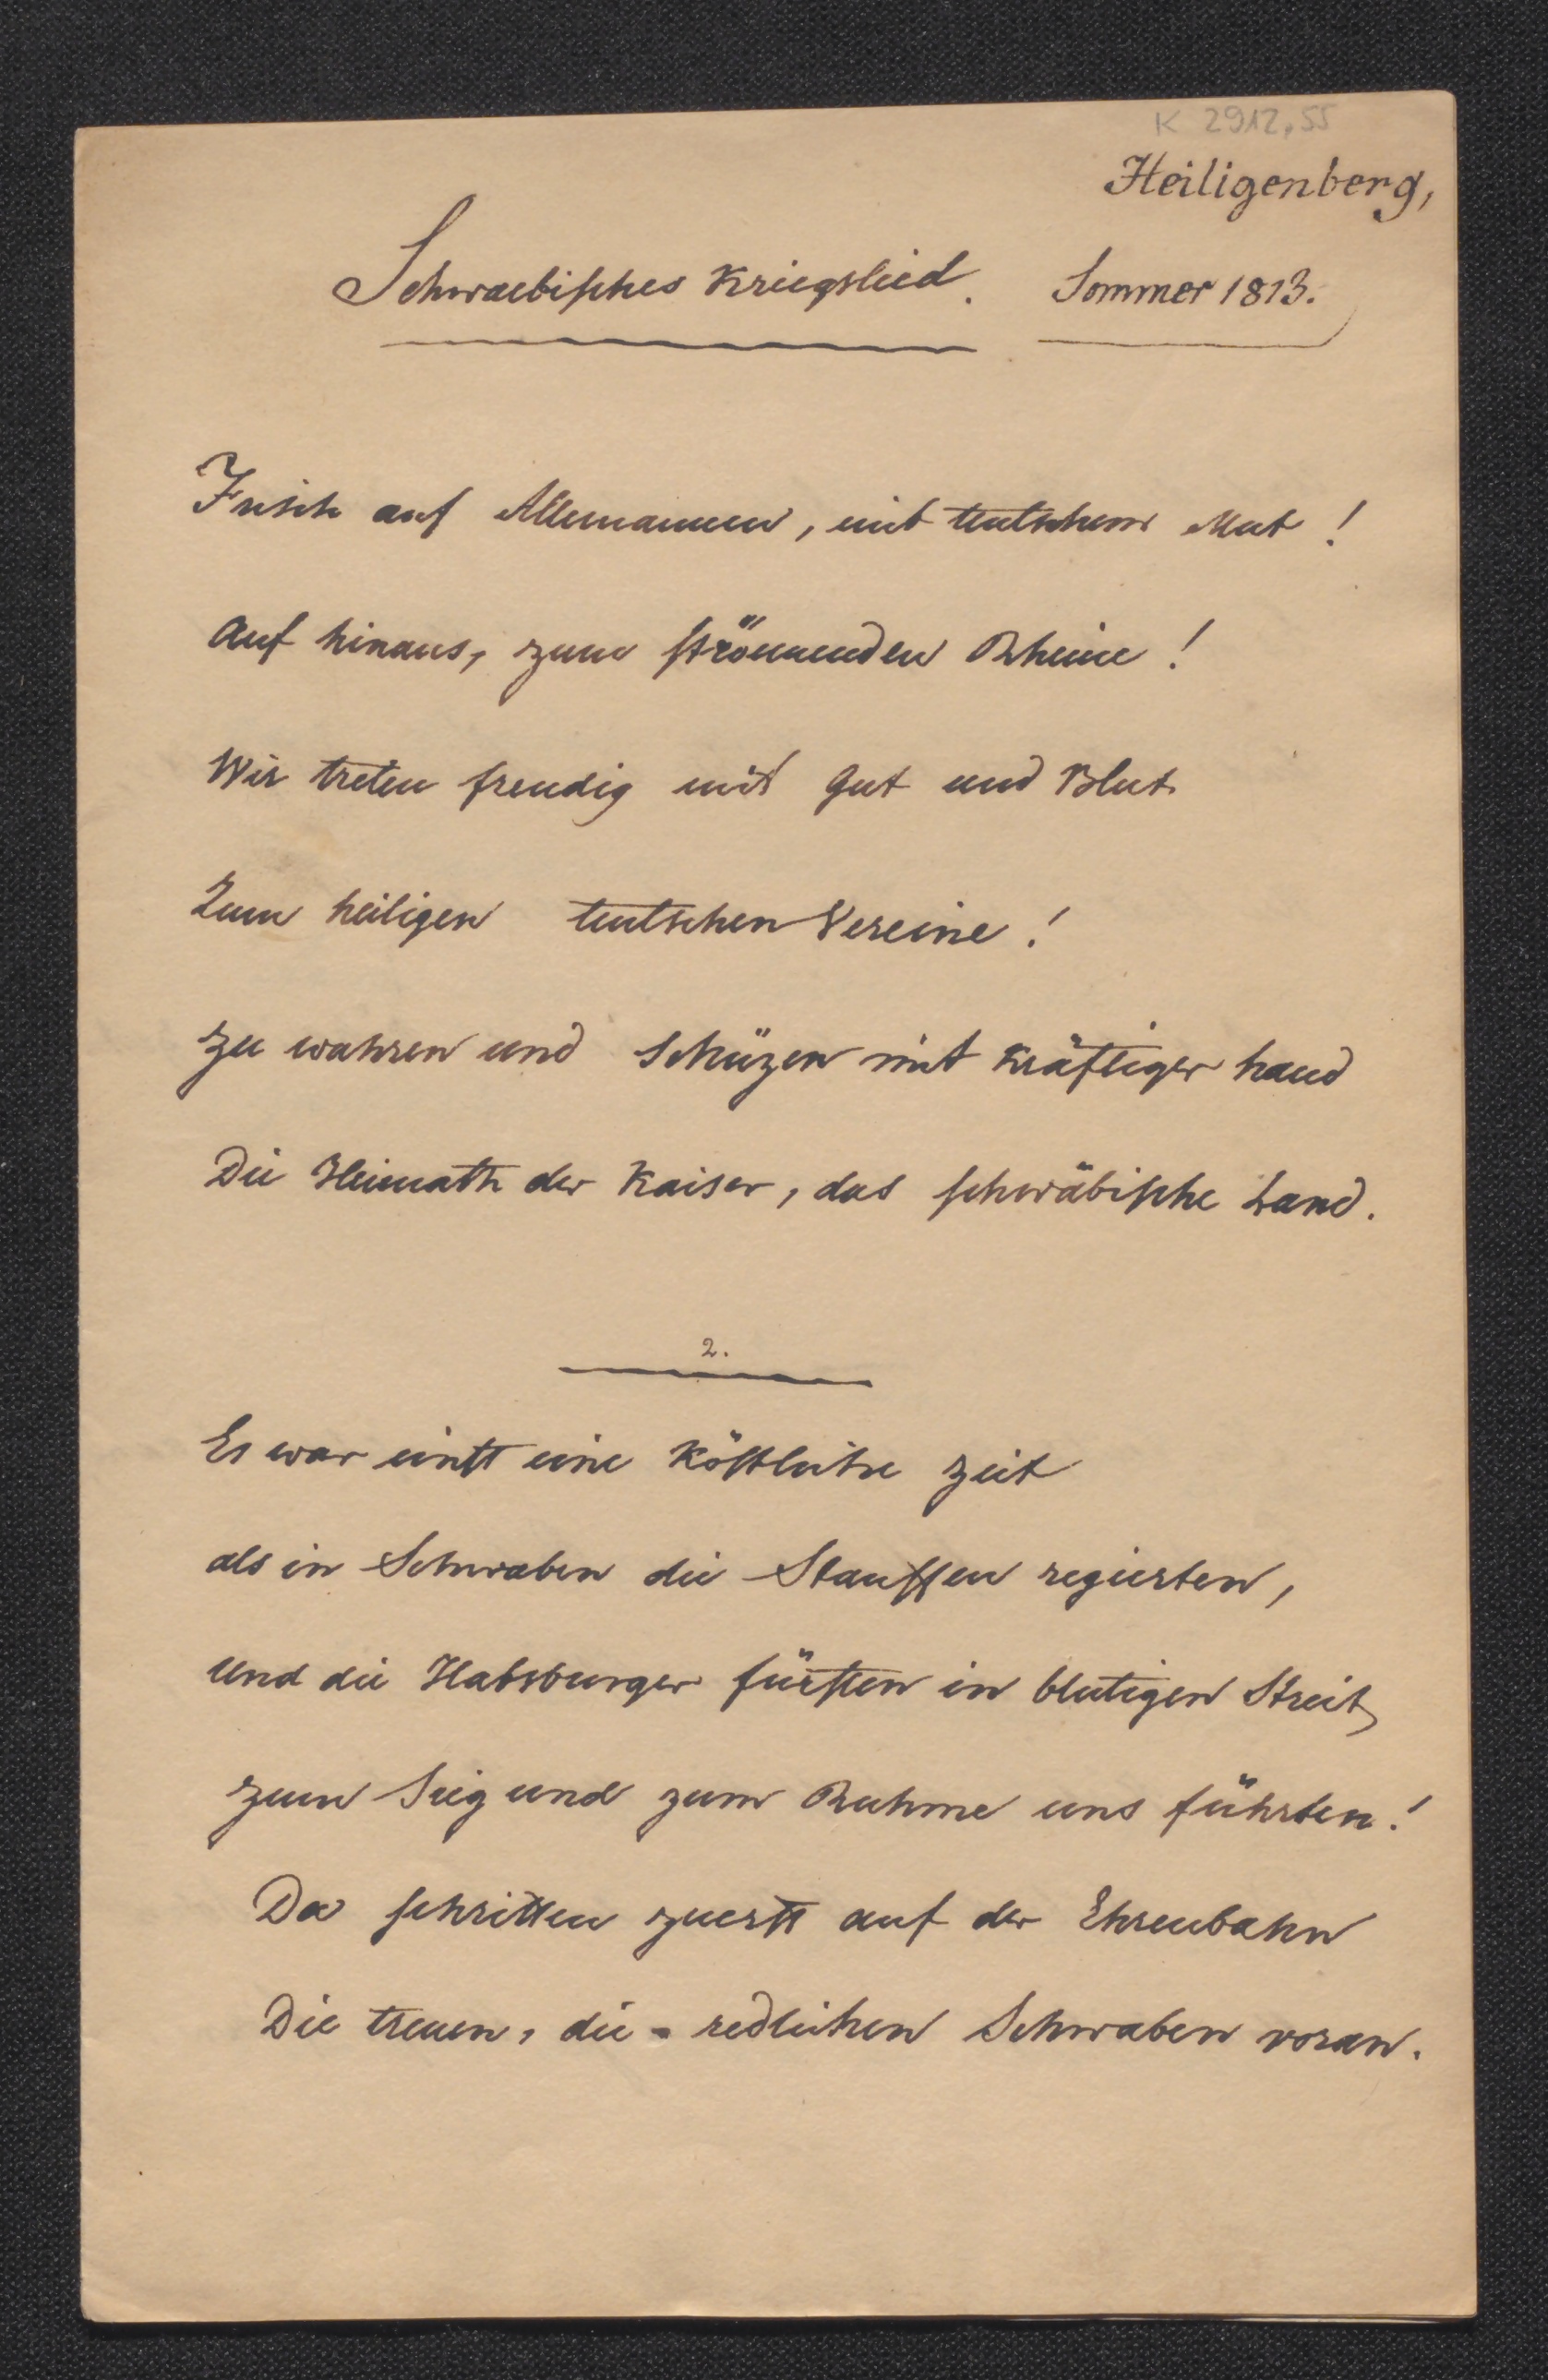 K 2912,55
Heiligenberg,
Schwaebisches Kriegslied. Sommer 1813.
Frisch auf Allemannen, mit teutschem Mut!
Auf hinaus, zum strömmenden Rheine!
Wir treten freudig mit Gut und Blut
Zum heiligen teutschen Vereine!
zu wahren und schüzen mit kräftiger hand
Die Heimath der Kaiser, das schwäbische Land.
2.
Es war einst eine köstliche Zeit
als in Schwaben die Stauffen regierten,
und die Habsburger fürsten in blutigen Streit
zum Sieg und zum Ruhme uns führten!
Da schritten zuerst auf der Ehrenbahn
Die treuen, die - redlichen Schwaben voran.